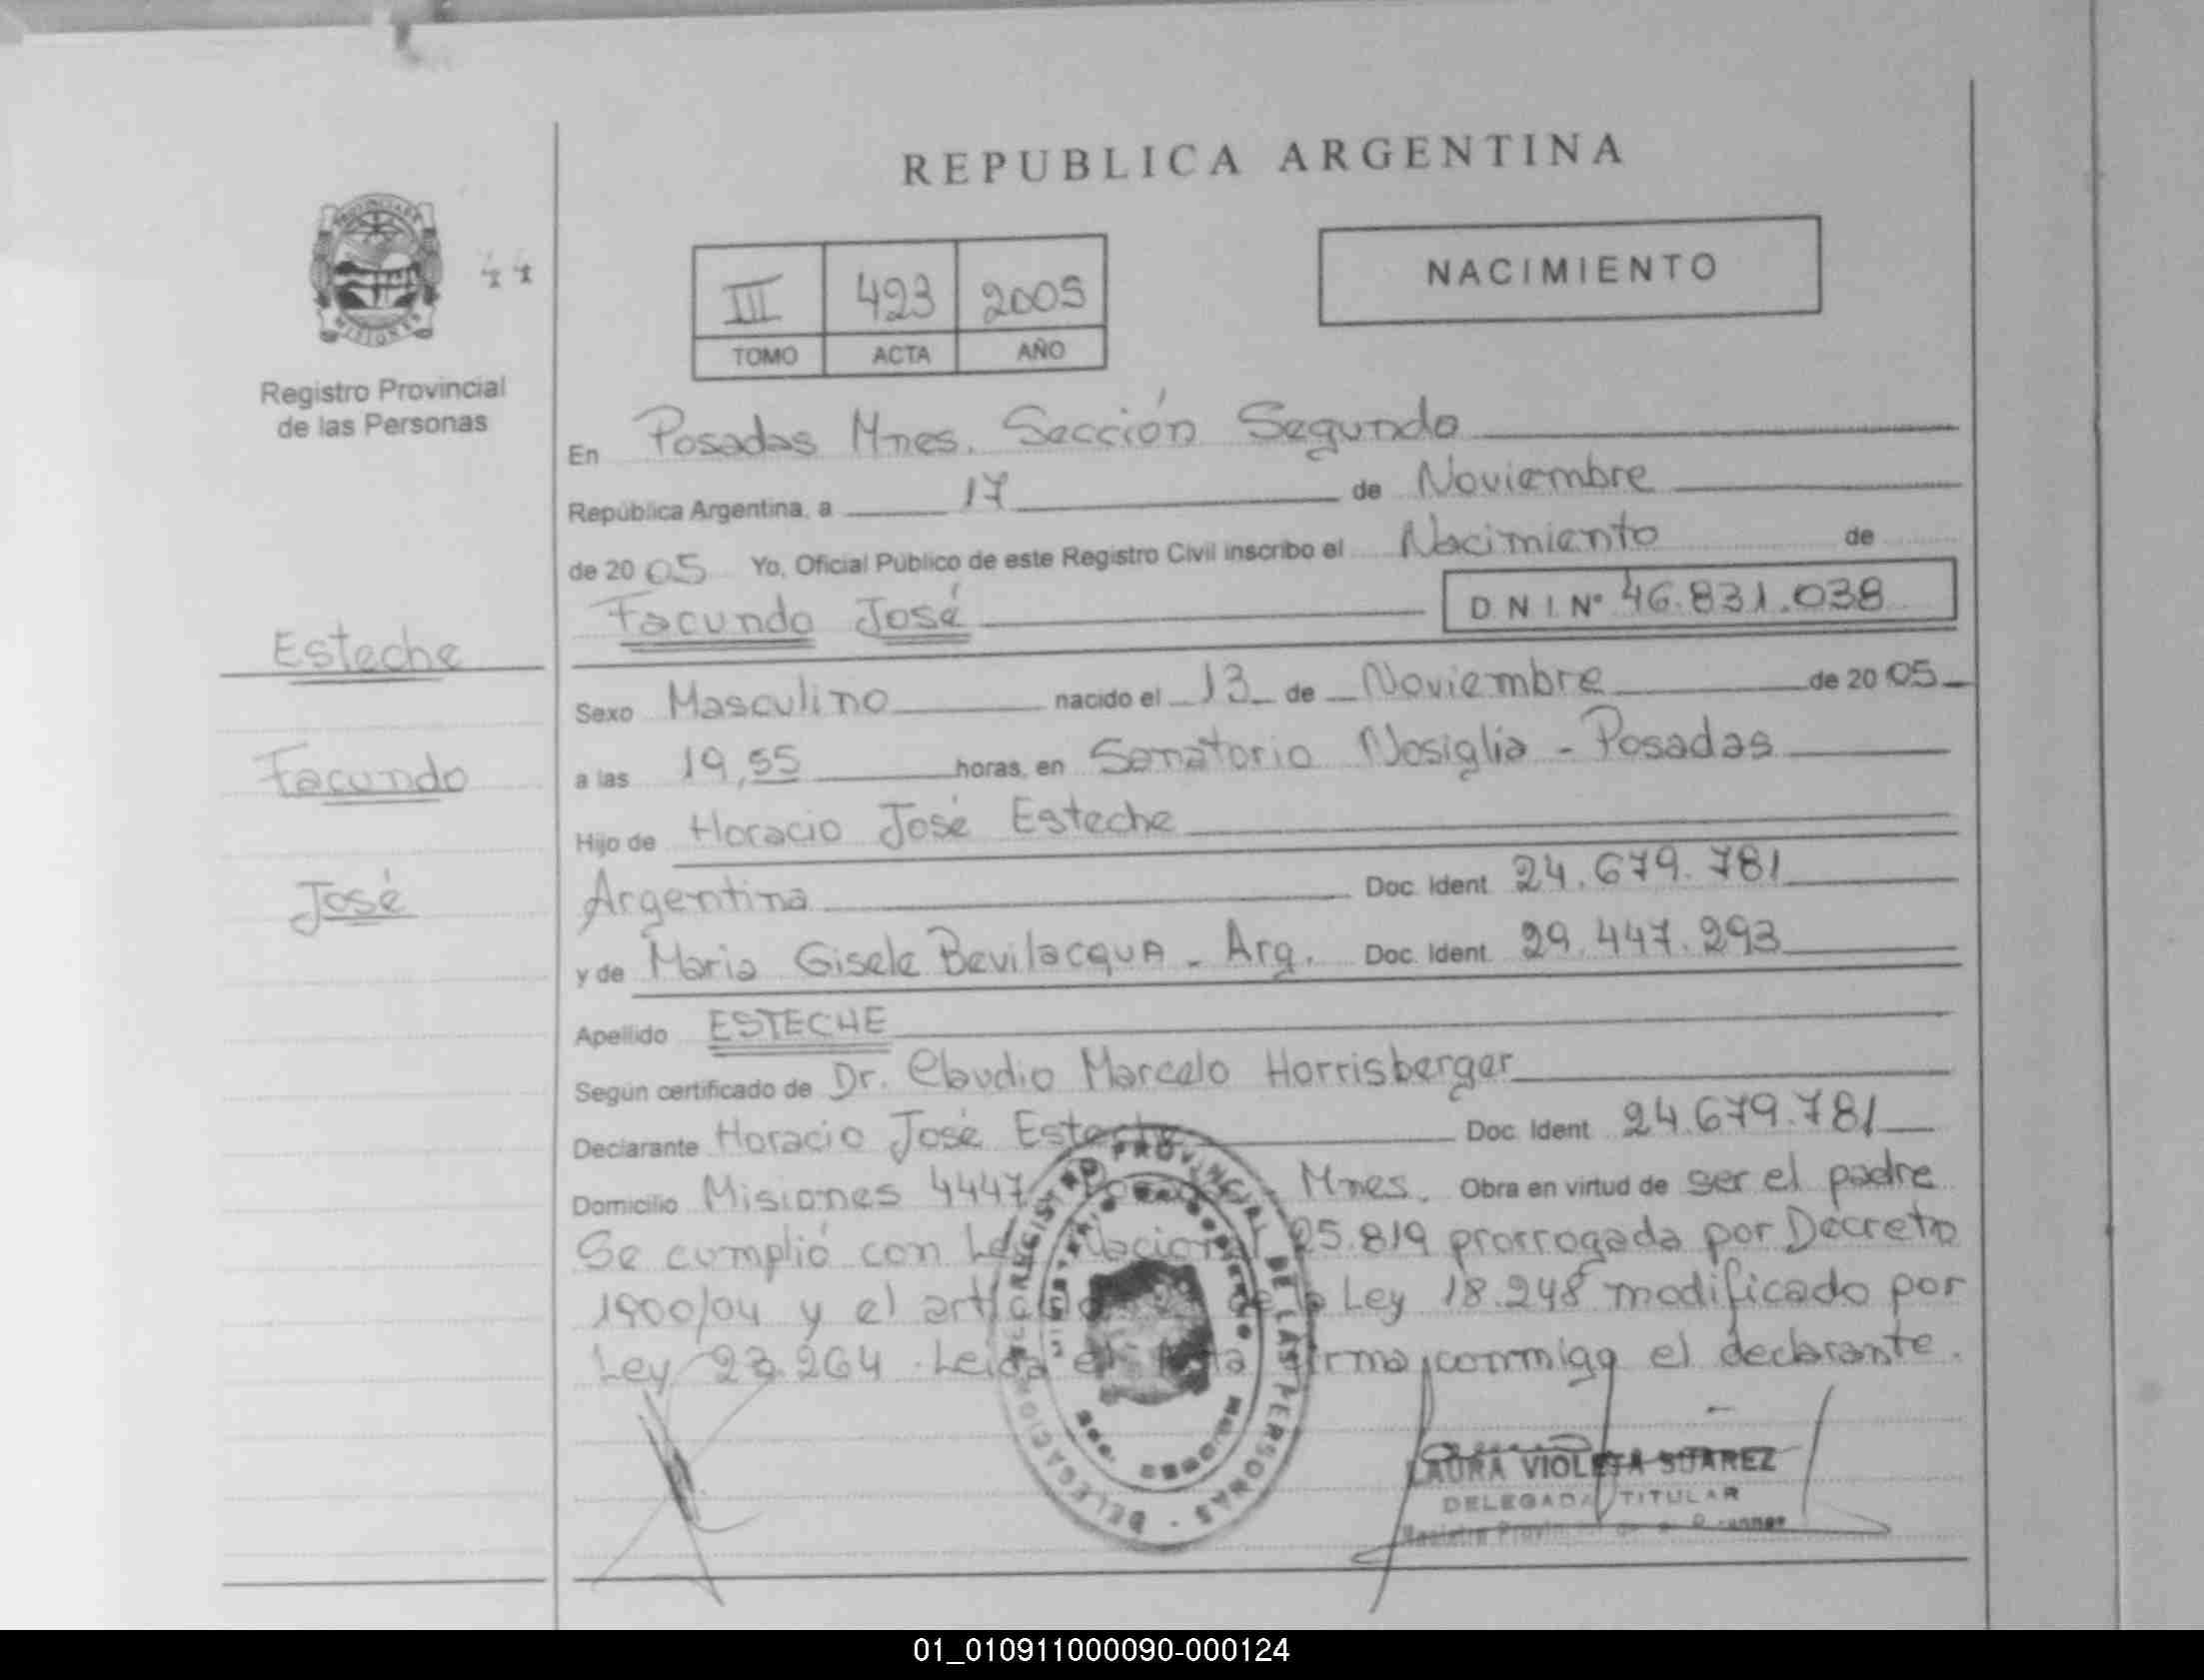 REPUBLICA ARGENTINA
PROVINCIA DE
MISIONES
Registro Provincial
de las Personas
III 423 2005
TOMO ACTA AÑO
NACIMIENTO
En Posadas Mnes. Sección Segunda
República Argentina, a 17 de Noviembre
de 2005 Yo, Oficial Público de este Registro Civil inscribo el Nacimiento de
Facundo José D N I. Nº 46.831.038
Esteche
Facundo
José
Sexo Masculino nacido el 13 de Noviembre de 2005
a las 19,55 horas, en Sanatorio Nosiglia - Posadas
Hijo de Horacio José Esteche
Argentina Doc. Ident. 24.679.781
y de Maria Gisele Bevilacqua - Arg. Doc. Ident. 29.447.293
Apellido ESTECHE
Según certificado de Dr. Claudio Marcelo Horrisberger
Declarante Horacio José Esteche Doc. Ident. 24.679.781
Domicilio Misiones 4447 Mnes. Obra en virtud de ser el padre
Se cumplió con Ley Nacional 25.819 prorrogada por Decreto
1900/04 y el artículo de la Ley 18.248 modificado por
Ley 23.264. Leida el Acta firma conmigo el declarante.
REGISTRO PROVINCIAL DE LAS PERSONAS - DELEGACION
LAURA VIOLETA SUAREZ
DELEGADA TITULAR
Registro Provincial
01_010911000090-000124